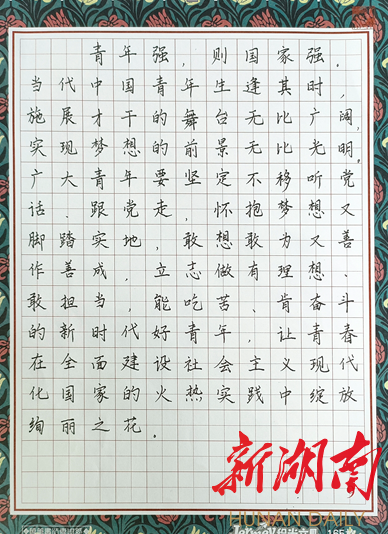 青年强，则国家强．
当代中国青年生逢其时，
施展才干的舞台无比广阔，
实现梦想的前景无比光明．
广大青年要坚定不移听党
话．跟党走，怀抱梦想又
脚踏实地，敢想敢为又善
作善成，立志做有理想、
敢担当，能吃苦、肯奋斗
的新时代好青年，让青春
在全面建设社会主义现代
化国家的火热实践中绽放
绚丽之花．
新湖南
HUNAN DAILY